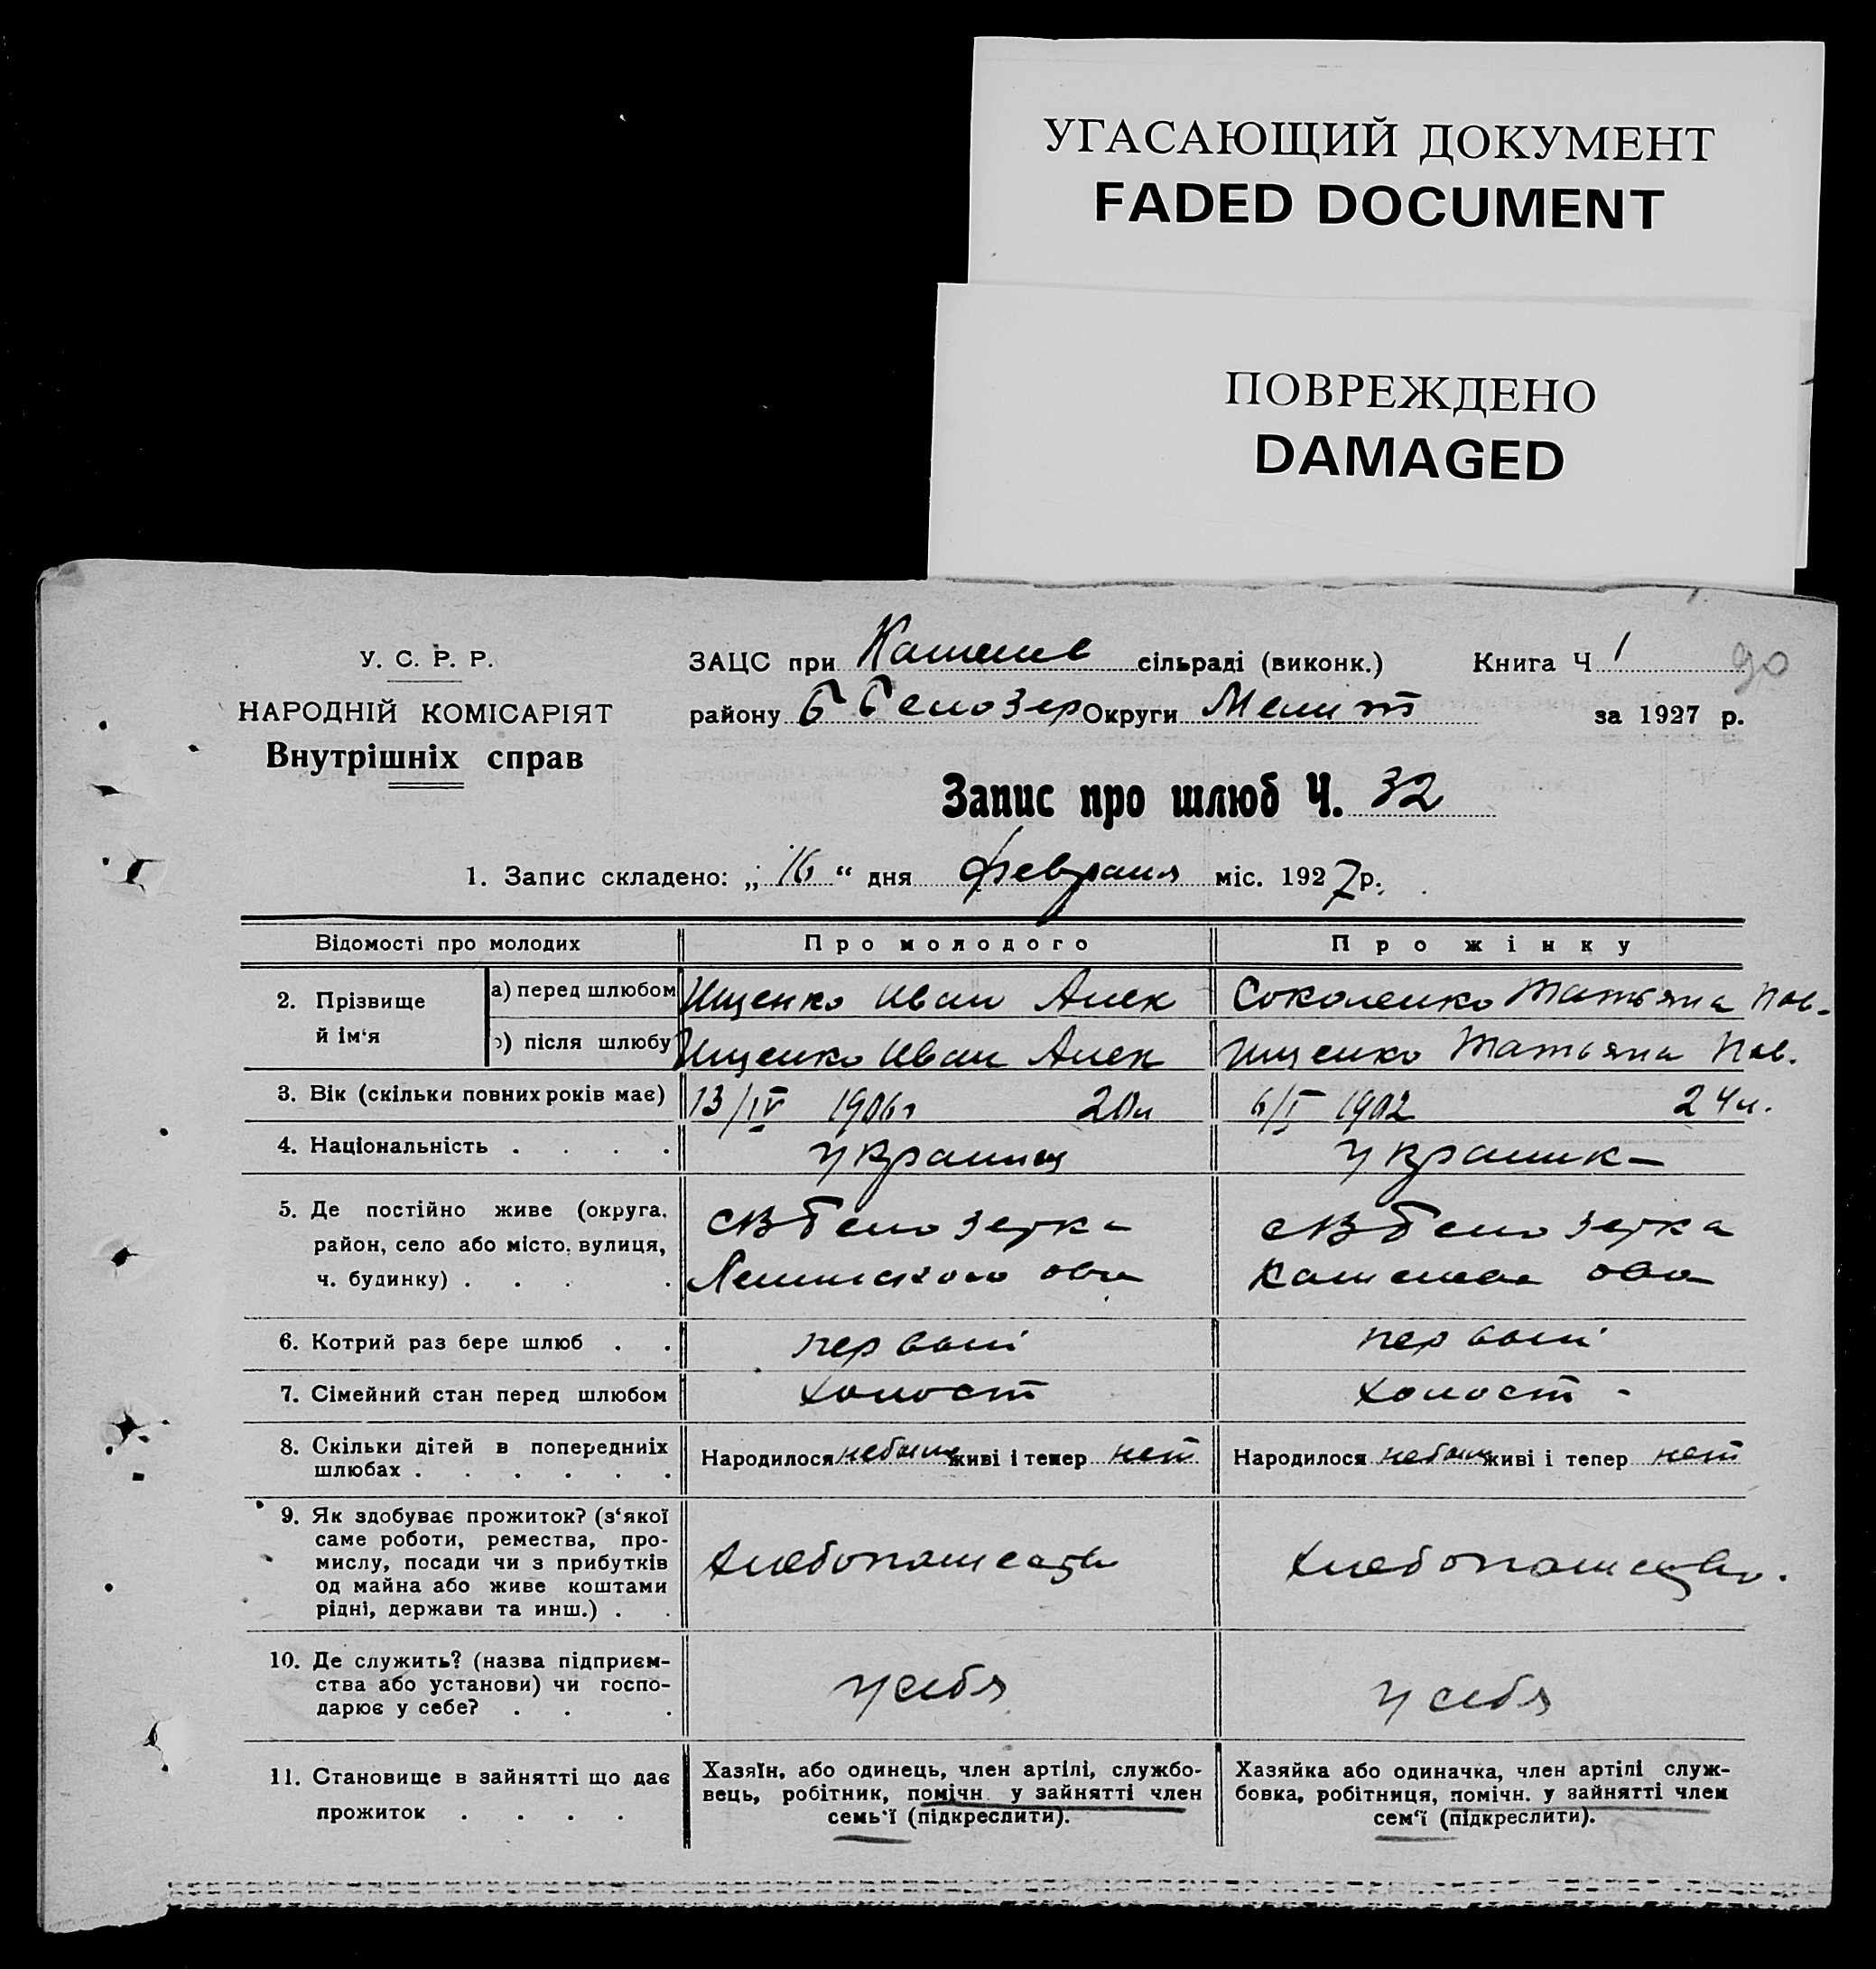 УГАСАЮЩИЙ ДОКУМЕНТ
FADED DOCUMENT
ПОВРЕЖДЕНО
DAMAGED
У. С. Р. Р.
НАРОДНІЙ КОМІСАРІЯТ
Внутрішніх справ
ЗАЦС при сільраді (виконк.) Книга Ч 1 90
району Б Белозер Округи Мелит за 1927 р.
Запис про шлюб Ч. 32
1. Запис складено: „ 16 “ дня февраля міс. 1927 р.
Відомості про молодих Про молодого Про жінку
2. Прізвище й ім‘я
а) перед шлюбом Ищенко Иван Алек Соколенко Татьяна Пав.
) після шлюбу Ищенко Иван Алек Ищенко Татьяна Пав.
3. Вік (скільки повних років має) 13/IV 1906г 20л 6/I 1902 24л.
4. Національність . . . . украинец украинк-
5. Де постійно живе (округа, СВ Белозерка СВ Белозерка
район, село або місто, вулиця,
ч. будинку) . . . .
6. Котрий раз бере шлюб . . первый первый
7. Сімейний стан перед шлюбом холост холост -
8. Скільки дітей в попередниіх
шлюбах . . . . . . Народилося небыло живі і тепер нет Народилося небыло живі і тепер нет
9. Як здобуває прожиток? (з‘якої
саме роботи, ремества, про-
мислу, посади чи з прибутків хлебопашество хлебопашество.
од майна або живе коштами
рідні, держави та инш.) . .
10. Де служить? (назва підприєм-
ства або установи) чи госпо- у себя у себя
дарює у себе? . . .
11. Становище в зайнятті що дає
прожиток . . . .
Хазяїн, або одинець, член артілі, службо-
вець, робітник, помічн. у зайнятті член
семь‘ї (підкреслити).
Хазяйка або одиначка, член артілі служ-
бовка, робітниця, помічн. у зайнятті член
сем‘ї (підкреслити).